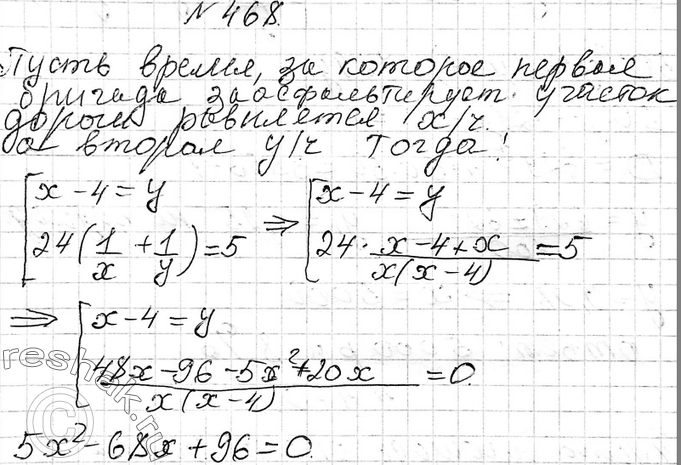 №468.
Пусть время, за которое первая
бригада заасфальтирует участок
дороги равняется x/ч.
а вторая y/ч Тогда:
[x-4=y => [x-4=y
[24(1/x+1/y)=5 [24·(x-4+x)/(x(x-4))=5
=> [x-4=y
[(48x-96-5x²+20x)/(x(x-4))=0.
5x²-68x+96=0.
reshak.ru
©